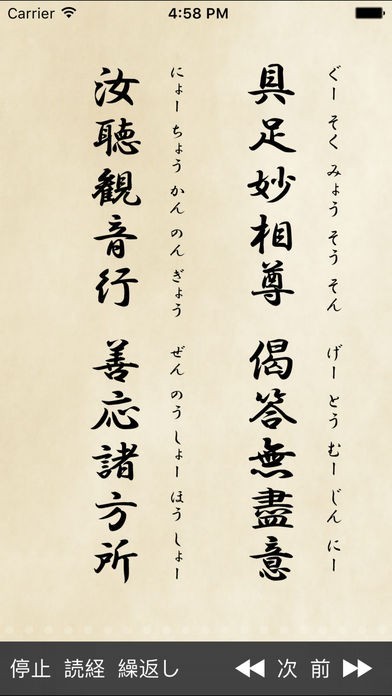 Carrier 4:58 PM
ぐー そく みょう そう そん げー とう むー じん にー
具足妙相尊 偈答無盡意
にょー ちょう かん のん ぎょう ぜん のう しょー ほう しょー
汝聴観音行 善応諸方所
停止 読経 繰返し 次 前